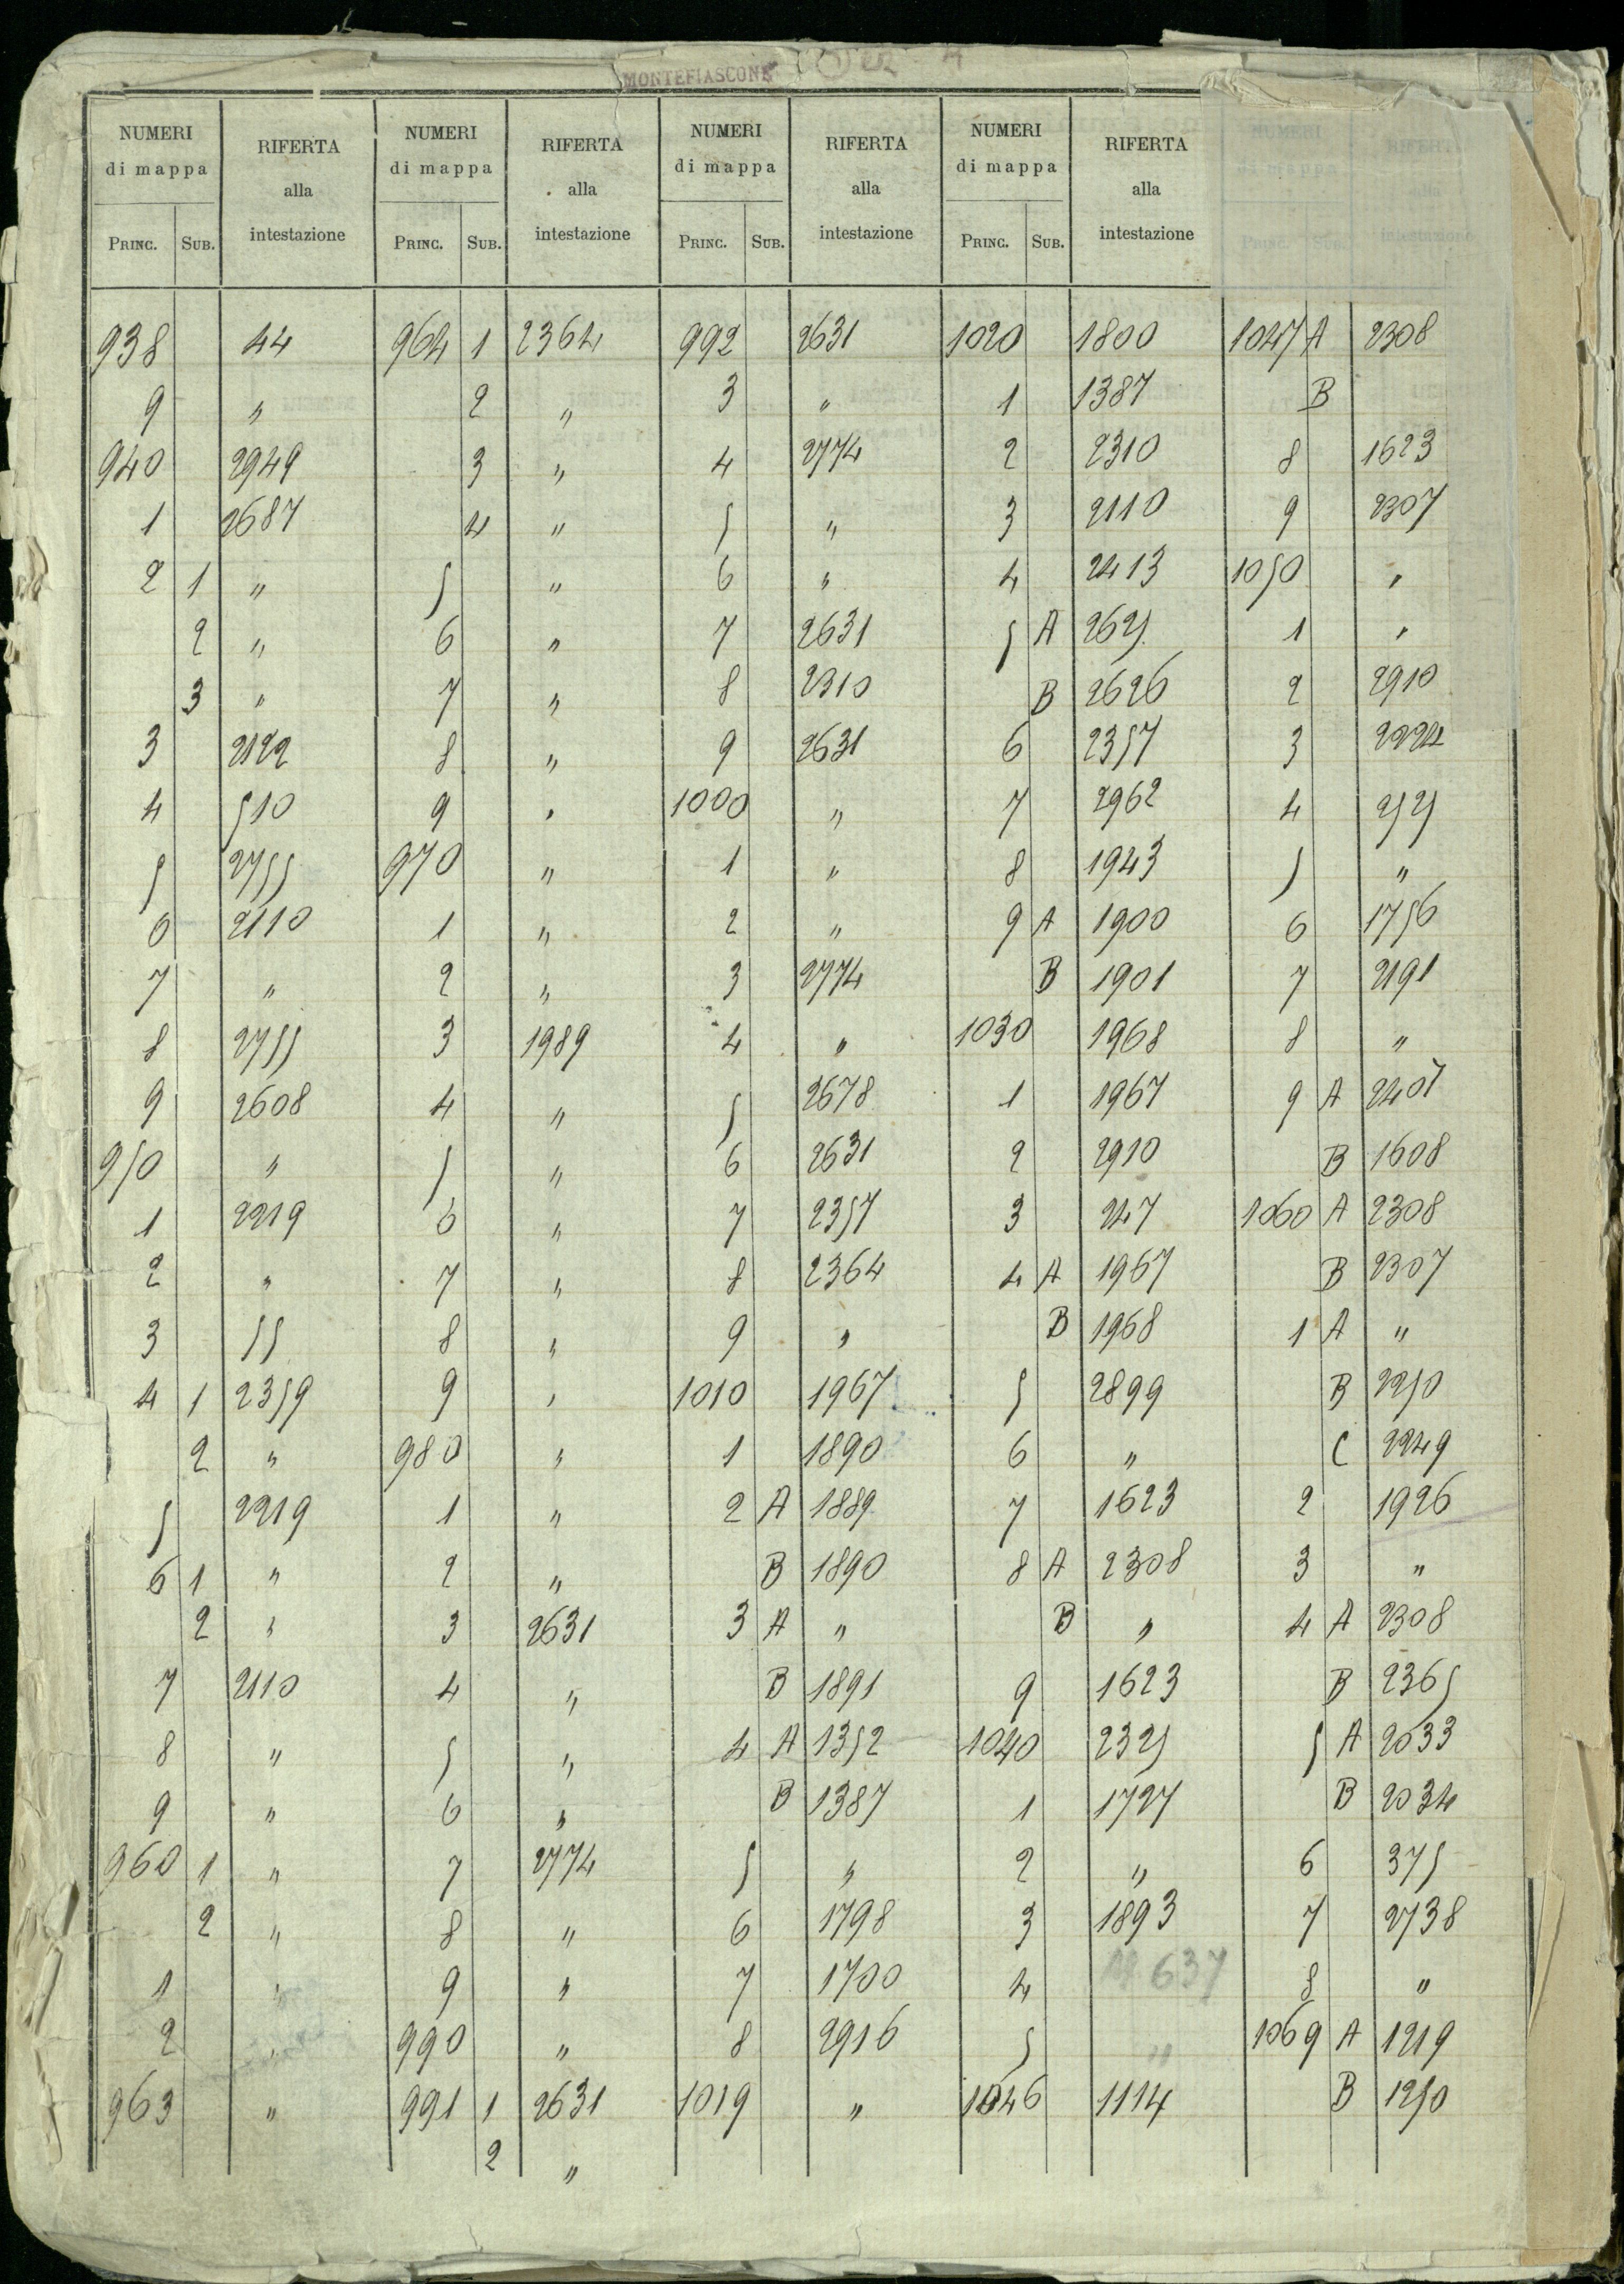 MONTEFIASCONE
NUMERI di mappa RIFERTA alla intestazione NUMERI di mappa RIFERTA alla intestazione NUMERI di mappa RIFERTA alla intestazione NUMERI di mappa RIFERTA alla intestazione NUMERI di mappa RIFERTA alla intestazione
PRINC. SUB. PRINC. SUB. PRINC. SUB. PRINC. SUB. PRINC. SUB.
938 44 964 1 2364 992 2631 1020 1800 1047 A 2308
9 " 2 " 3 " 1 1387 B
940 2949 3 " 4 2774 2 2310 8 1623
1 2687 4 " 5 " 3 2110 9 2307
2 1 " 5 " 6 " 4 2413 1050 "
2 " 6 " 7 2631 5 A 2625 1 "
3 " 7 " 8 2310 B 2626 2 2910
3 2122 8 " 9 2631 6 2357 3 2224
4 510 9 " 1000 " 7 2962 4 2525
5 2755 970 " 1 " 8 1943 5 "
6 2110 1 " 2 " 9 A 1900 6 1756
7 " 2 " 3 2774 B 1901 7 2191
8 2755 3 1989 4 " 1030 1968 8 "
9 2608 4 " 5 2678 1 1967 9 A 2407
950 " 5 " 6 2631 2 2910 B 1608
1 2219 6 " 7 2357 3 247 1060 A 2308
2 " 7 " 8 2364 4 A 1967 B 2307
3 55 8 " 9 " B 1968 1 A "
4 1 2359 9 " 1010 1967 5 2899 B 2250
2 " 980 " 1 1890 6 " C 2249
5 2219 1 " 2 A 1889 7 1623 2 1926
6 1 " 2 " B 1890 8 A 2308 3 "
2 " 3 2631 3 A " B " 4 A 2308
7 2110 4 " B 1891 9 1623 B 2365
8 " 5 " 4 A 1352 1040 2325 5 A 2033
9 " 6 " B 1387 1 1727 B 2034
960 1 " 7 2774 5 " 2 " 6 375
2 " 8 " 6 1798 3 1893 7 2738
1 " 9 " 7 1700 4 637 8 "
2 " 990 " 8 2916 5 " 1069 A 1219
963 " 991 1 2631 1019 " 1046 1114 B 1250
2 "